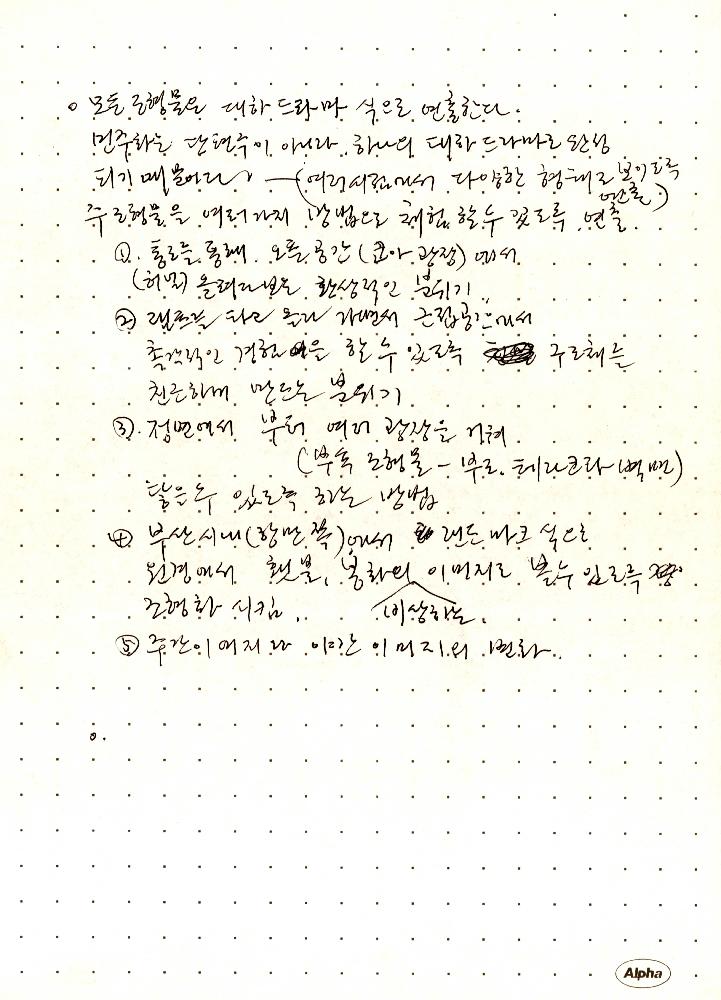 o 모든 조형물은 대하 드라마 식으로 연출한다.
민주화는 단편극이 아니라 하나의 대하드라마로 완성
되기 때문이다. —(여러시점에서 다양한 형태로 보이도록 연출)
주 조형물을 여러가지 방법으로 체험할 수 있도록 연출.
①. 통로를 통해 오픈 공간 (코아 광장) 에서
올려다보는 환상적인 분위기.
② 램프를 타고 올라 가면서 근접공간에서
촉각적인 경험을 할 수 있도록 구조체를
친근하게 만드는 분위기.
③. 정면에서 부터 여러 광장을 거쳐
(부속 조형물 - 부조. 테라코타 벽면)
닿을 수 있도록 하는 방법
④ 부산시내(항만 쪽)에서 랜드마크 식으로
원경에서 횃불, 봉화의 이미지로 볼 수 있도록
조형화 시킴. 비상하는.
⑤ 주간이미지와 야간 이미지의 변화.
o.
Alpha